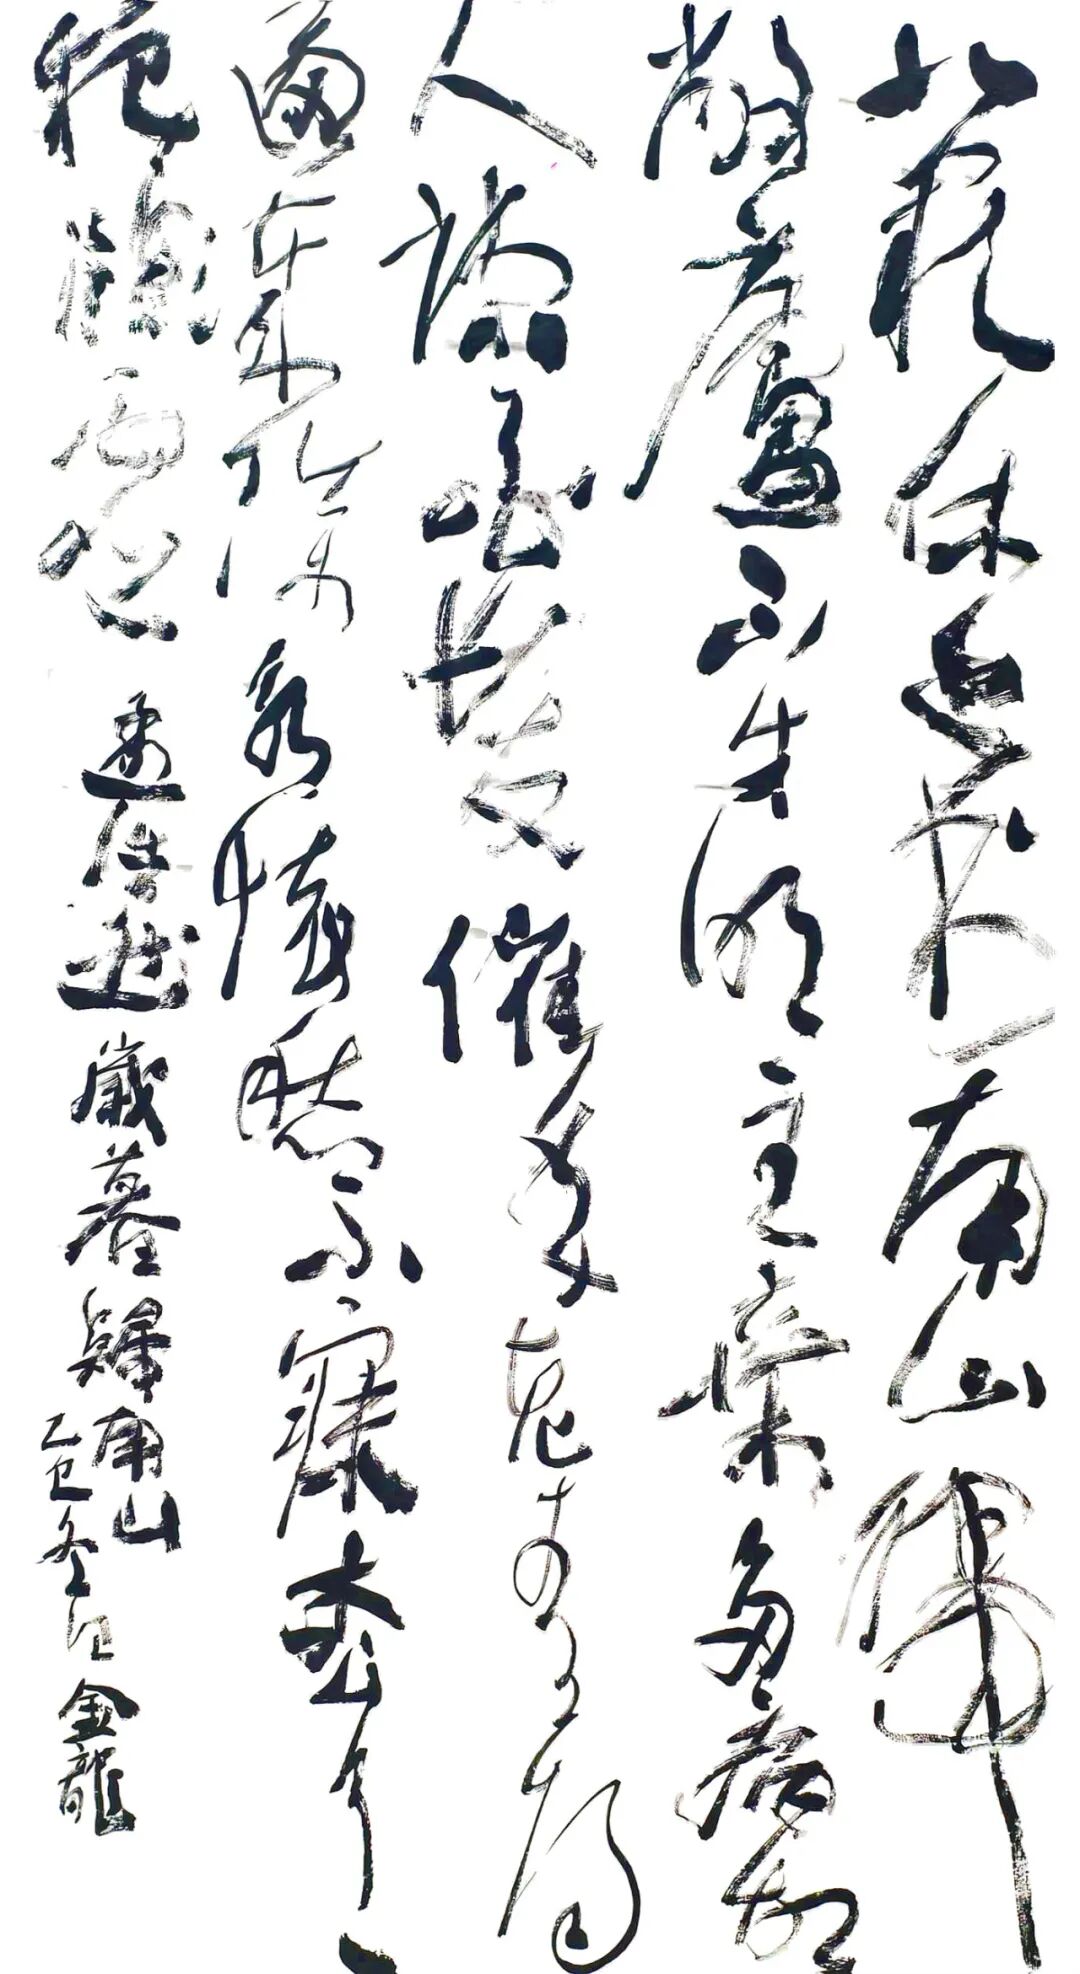 北闕休上書南山歸
敝廬不才明主棄多病故
人疎白髮催年老青陽
逼歲除永懷愁不寐松月
夜窗虛孟浩然歲暮歸南山
乙巳冬日金龍